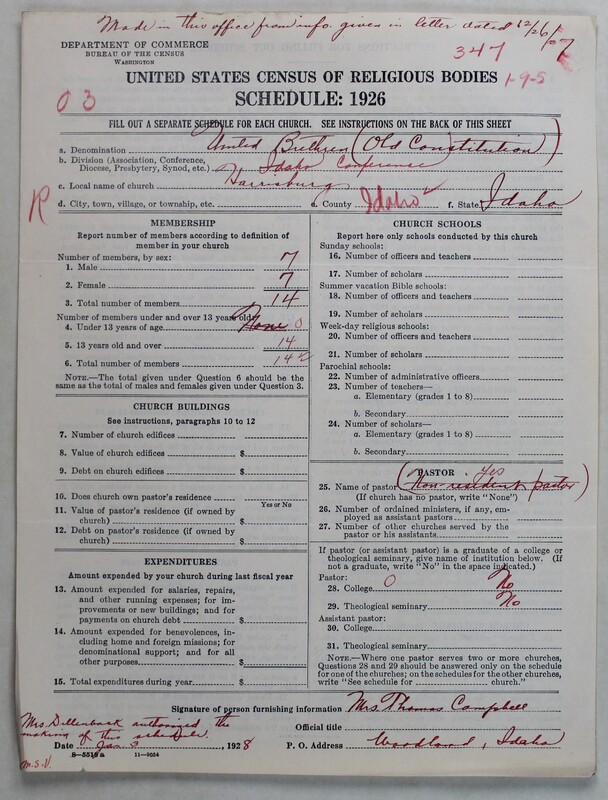 Made in this office from info. given in letter dated 12/26/27
DEPARTMENT OF COMMERCE
BUREAU OF THE CENSUS
WASHINGTON
347
UNITED STATES CENSUS OF RELIGIOUS BODIES
1-9-5
03
SCHEDULE: 1926
FILL OUT A SEPARATE SCHEDULE FOR EACH CHURCH. SEE INSTRUCTIONS ON THE BACK OF THIS SHEET
a. Denomination United Brethren (Old Constitution)
b. Division (Association, Conference,
Diocese, Presbytery, Synod, etc.) Idaho Conference
c. Local name of church Harrisburg
R
d. City, town, village, or township, etc. e. County Idaho f. State Idaho
MEMBERSHIP
Report number of members according to definition of
member in your church
Number of members, by sex:
1. Male 7
2. Female 7
3. Total number of members 14
Number of members under and over 13 years old:
4. Under 13 years of age None 0
5. 13 years old and over 14
6. Total number of members 14
NOTE.—The total given under Question 6 should be the
same as the total of males and females given under Question 3.
CHURCH BUILDINGS
See instructions, paragraphs 10 to 12
7. Number of church edifices
8. Value of church edifices $
9. Debt on church edifices $
10. Does church own pastor's residence
Yes or No
11. Value of pastor's residence (if owned by
church) $
12. Debt on pastor's residence (if owned by
church) $
EXPENDITURES
Amount expended by your church during last fiscal year
13. Amount expended for salaries, repairs,
and other running expenses; for im-
provements or new buildings; and for
payments on church debt $
14. Amount expended for benevolences, in-
cluding home and foreign missions; for
denominational support; and for all
other purposes $
15. Total expenditures during year $
CHURCH SCHOOLS
Report here only schools conducted by this church
Sunday schools:
16. Number of officers and teachers
17. Number of scholars
Summer vacation Bible schools:
18. Number of officers and teachers
19. Number of scholars
Week-day religious schools:
20. Number of officers and teachers
21. Number of scholars
Parochial schools:
22. Number of administrative officers
23. Number of teachers—
a. Elementary (grades 1 to 8)
b. Secondary
24. Number of scholars—
a. Elementary (grades 1 to 8)
b. Secondary
PASTOR yes
25. Name of pastor (Non-resident pastor)
(If church has no pastor, write "None")
26. Number of ordained ministers, if any, em-
ployed as assistant pastors
27. Number of other churches served by the
pastor or his assistants
If pastor (or assistant pastor) is a graduate of a college or
theological seminary, give name of institution below. (If
not a graduate, write "No" in the space indicated.)
Pastor:
28. College 0 No
29. Theological seminary No
Assistant pastor:
30. College
31. Theological seminary
NOTE.—Where one pastor serves two or more churches,
Questions 28 and 29 should be answered only on the schedule
for one of the churches; on the schedules for the other churches,
write "See schedule for church."
Signature of person furnishing information Mrs Thomas Campbell
Mrs Dellenback authorized the
making of this schedule.
Official title
Date Jan 3, 1928 P. O. Address Woodland, Idaho
8—5519a 11—9034
M.S.V.